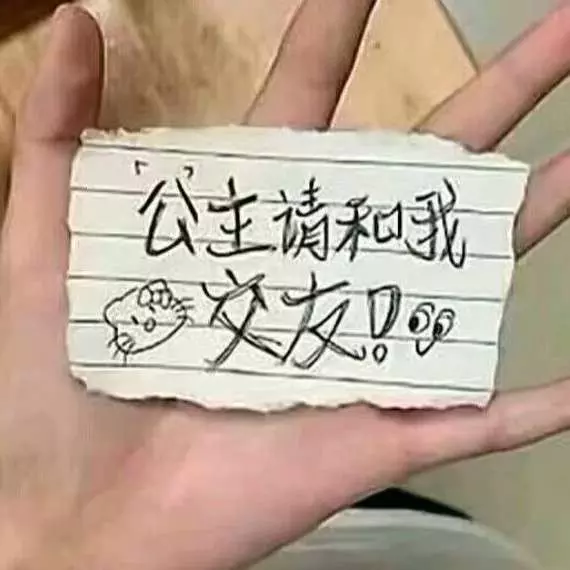 “公主请和我
交友!